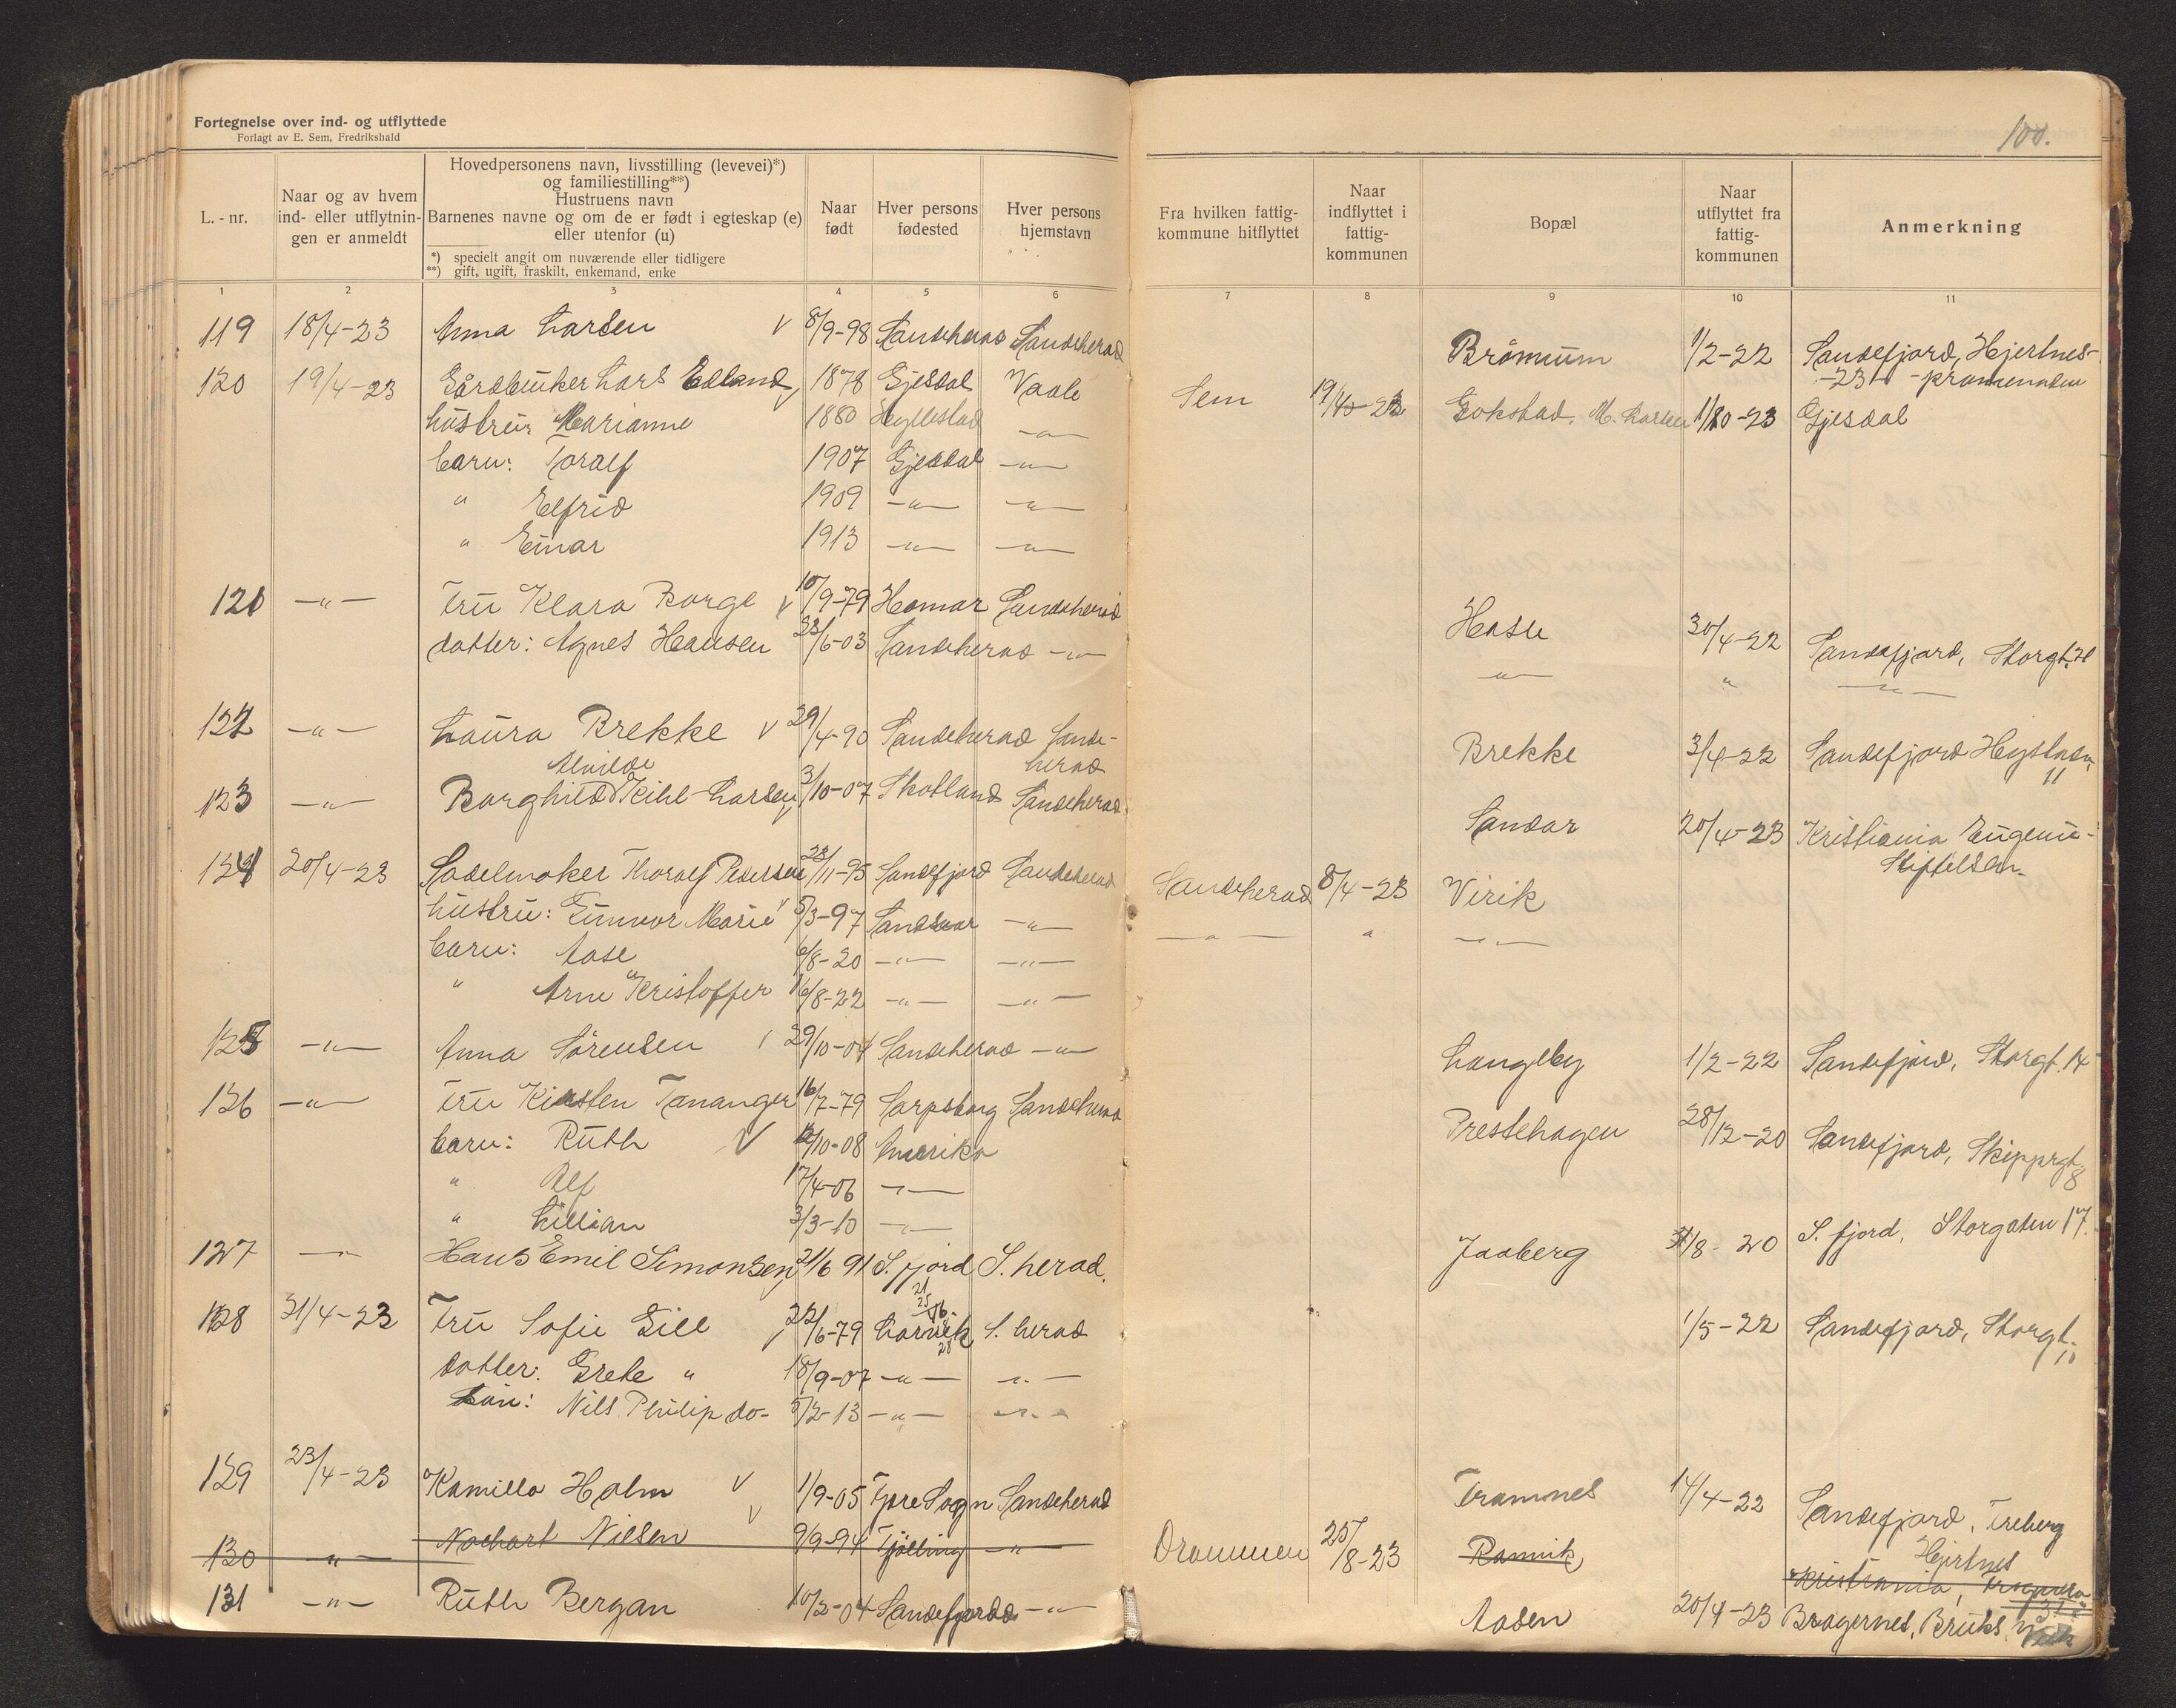 Fortegnelse over ind- og utflyttede
Forlagt av E. Sem, Fredrikshald
100.
L. - nr.
Naar og av hvem ind- eller utflytnin-gen er anmeldt
Hovedpersonens navn, livsstilling (levevei)*)
og familiestilling**)
Hustruens navn
Barnenes navne og om de er født i egteskap (e)
eller utenfor (u)
*) specielt angit om nuværende eller tidligere
**) gift, ugift, fraskilt, enkemand, enke
Naar født
Hver persons fødested
Hver persons hjemstavn
Fra hvilken fattig-kommune hitflyttet
Naar indflyttet i fattig-kommunen
Bopæl
Naar utflyttet fra fattig-kommunen
Anmerkning
1 2 3 4 5 6 7 8 9 10 11
119 18/4-23 Anna Larsen v 8/9-98 Sandeherad Sandeherad Bråmunm 1/2-22 Sandefjord, Hjertnes-
-23- -promenaden
120 19/4-23 Gårdbruker Lars Edland v 1878 Gjesdal Vaale Sem 19/4-23 Gokstad, M. Larsen 1/10-23 Gjesdal
hustru: Marianne 1880 Høyllestad -"-
barn: Toralf 1907 Gjesdal -"-
" Elfrid 1909 -"- -"-
" Einar 1913 -"- -"-
121 -"- Fru Klara Borge v 10/9-79 Hamar Sandeherad Hasle 30/4-22 Sandefjord, Storgt.
datter: Agnes Hansen 23/6-03 Sandeherad -"- -"- " -"-
122 -"- Laura Brekke v 29/4-90 Sandeherad Sande-
herad Brekke 3/4-22 Sandefjord
11
Alvilde
123 -"- Borghild Kihl-Larsen v 3/10-07 Skotland Sandeherad Sandar 20/4-23 Kristiania Eugenia-
Stiftelsen.
124 20/4-23 Sadelmaker Thoralf Pedersen 23/11-95 Sandefjord Sandeherad Sandeherad 8/4-23 Virik
hustru: Gunvor Marie v 5/3-97 -"- -"- " -"-
barn: Aase 6/8-20 -"- -"-
" Arne Kristoffer 16/8-22 -"- -"-
125 -"- Anna Sörensen 29/10-04 Sandeherad -"- Langeby 1/2-22 Sandefjord, Storgt. 14
126 -"- Fru Kirsten Tananger 16/7-79 Sarpsborg Sandeherad Prestehagen 28/12-20 Sandefjord, Skippergt.
8
barn: Ruth v /10-08 Amerika
" Alf 17/4-06 -"-
" Lillian 3/3-10 -"-
127 -"- Hans Emil Simonsen, 21/6 91 S. fjord S. herad. Jaaberg 31/8-20 S. fjord, Storgaten 17.
128 21/4-23 Fru Sofie Gill 22/6-79 Larvik S. herad 1/5-22 Sandefjord, Storgt.
10
datter: Grete " 18/9-07 -"- -"-
sön: Nils Philip do- 5/2-13 -"- -"-
129 23/4-23 Kamilla Holm v 1/9-05 Sandeherad Framnes 14/4-22 Sandefjord, Freberg
Hjertnes
130 -"- Nielsen v 9/9-94 Tjölling -"- Drammen 25/8-23 Rannik Kristiania,
131 -"- Ruth Bergan 10/2-04 Sandefjord -"- Aasen 20/4-23 Bragernes, Bruks